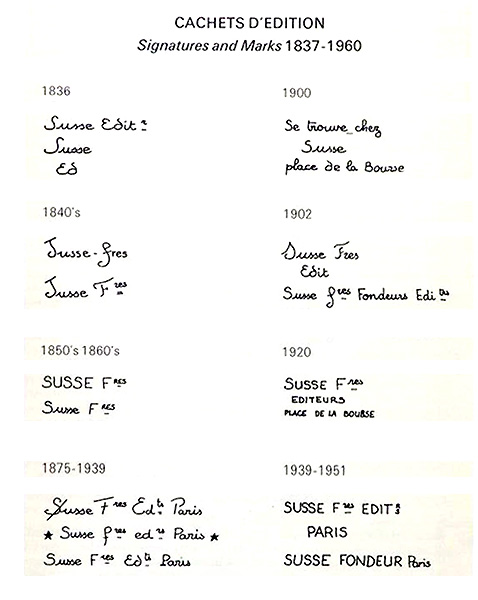 CACHETS D'EDITION
Signatures and Marks 1837-1960
1836
Susse Edit rs
Susse
Ed
1840's
Susse-fres
Susse Fres
1850's 1860's
SUSSE FRES
Susse FRES
1875-1939
Susse Fres Edts Paris
★ Susse fres edrs Paris ★
Susse Fres Edts Paris
1900
Se trouve chez
Susse
place de la Bourse
1902
Susse Fres
Edit
Susse fres Fondeurs Edi trs
1920
SUSSE Fres
EDITEURS
PLACE DE LA BOURSE
1939-1951
SUSSE Fres EDITRS
PARIS
SUSSE FONDEUR Paris